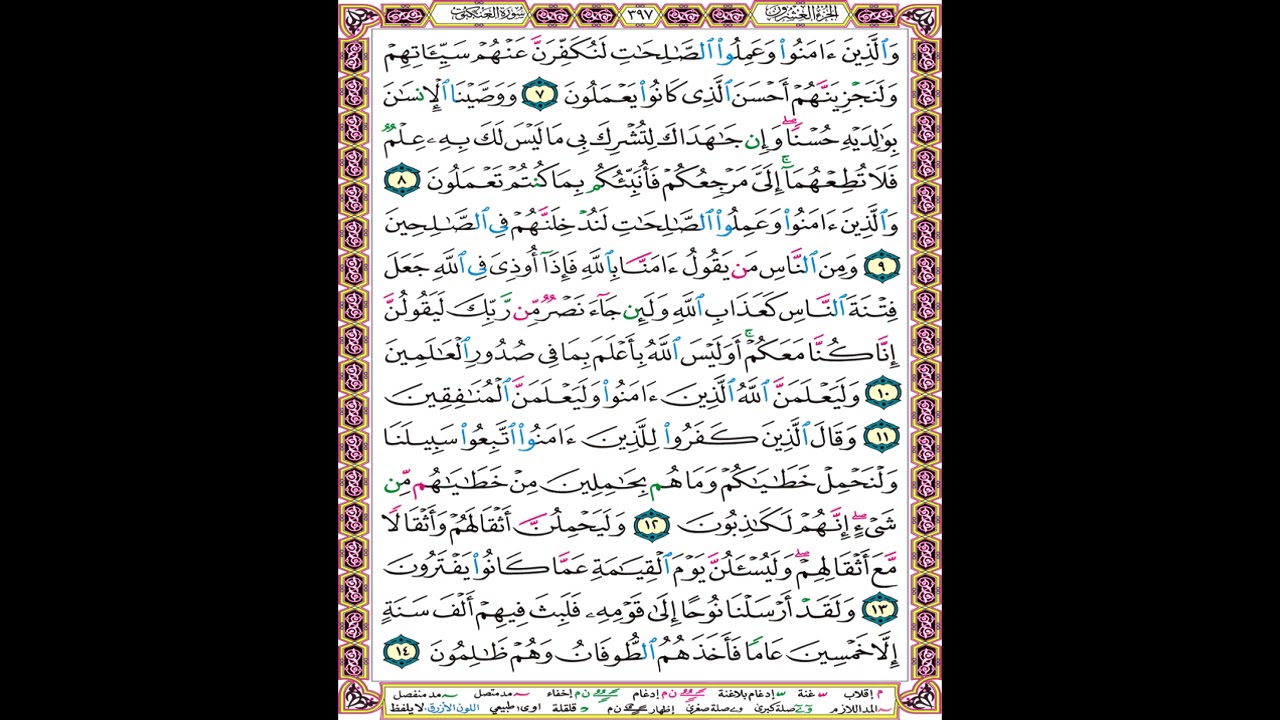 الجزء العشرون ٣٩٧ سورة العنكبوت
وَٱلَّذِينَ ءَامَنُوا۟ وَعَمِلُوا۟ ٱلصَّـٰلِحَـٰتِ لَنُكَفِّرَنَّ عَنْهُمْ سَيِّـَٔاتِهِمْ
وَلَنَجْزِيَنَّهُمْ أَحْسَنَ ٱلَّذِى كَانُوا۟ يَعْمَلُونَ ٧ وَوَصَّيْنَا ٱلْإِنسَـٰنَ
بِوَٰلِدَيْهِ حُسْنًا ۖ وَإِن جَـٰهَدَاكَ لِتُشْرِكَ بِى مَا لَيْسَ لَكَ بِهِۦ عِلْمٌ
فَلَا تُطِعْهُمَآ ۚ إِلَىَّ مَرْجِعُكُمْ فَأُنَبِّئُكُم بِمَا كُنتُمْ تَعْمَلُونَ ٨
وَٱلَّذِينَ ءَامَنُوا۟ وَعَمِلُوا۟ ٱلصَّـٰلِحَـٰتِ لَنُدْخِلَنَّهُمْ فِى ٱلصَّـٰلِحِينَ
٩ وَمِنَ ٱلنَّاسِ مَن يَقُولُ ءَامَنَّا بِٱللَّهِ فَإِذَآ أُوذِىَ فِى ٱللَّهِ جَعَلَ
فِتْنَةَ ٱلنَّاسِ كَعَذَابِ ٱللَّهِ وَلَئِن جَآءَ نَصْرٌ مِّن رَّبِّكَ لَيَقُولُنَّ
إِنَّا كُنَّا مَعَكُمْ ۚ أَوَلَيْسَ ٱللَّهُ بِأَعْلَمَ بِمَا فِى صُدُورِ ٱلْعَـٰلَمِينَ
١٠ وَلَيَعْلَمَنَّ ٱللَّهُ ٱلَّذِينَ ءَامَنُوا۟ وَلَيَعْلَمَنَّ ٱلْمُنَـٰفِقِينَ
١١ وَقَالَ ٱلَّذِينَ كَفَرُوا۟ لِلَّذِينَ ءَامَنُوا۟ ٱتَّبِعُوا۟ سَبِيلَنَا
وَلْنَحْمِلْ خَطَـٰيَـٰكُمْ وَمَا هُم بِحَـٰمِلِينَ مِنْ خَطَـٰيَـٰهُم مِّن
شَىْءٍ ۖ إِنَّهُمْ لَكَـٰذِبُونَ ١٢ وَلَيَحْمِلُنَّ أَثْقَالَهُمْ وَأَثْقَالًا
مَّعَ أَثْقَالِهِمْ ۖ وَلَيُسْـَٔلُنَّ يَوْمَ ٱلْقِيَـٰمَةِ عَمَّا كَانُوا۟ يَفْتَرُونَ
١٣ وَلَقَدْ أَرْسَلْنَا نُوحًا إِلَىٰ قَوْمِهِۦ فَلَبِثَ فِيهِمْ أَلْفَ سَنَةٍ
إِلَّا خَمْسِينَ عَامًا فَأَخَذَهُمُ ٱلطُّوفَانُ وَهُمْ ظَـٰلِمُونَ ١٤
م إقلاب غنة إدغام بلاغنة ن م إدغام ن م إخفاء مد متصل مد منفصل
المد اللازم صلة كبرى صلة صغرى إظهار ن م د قلقلة اوى طبيعي اللون الأزرق لا يلفظ